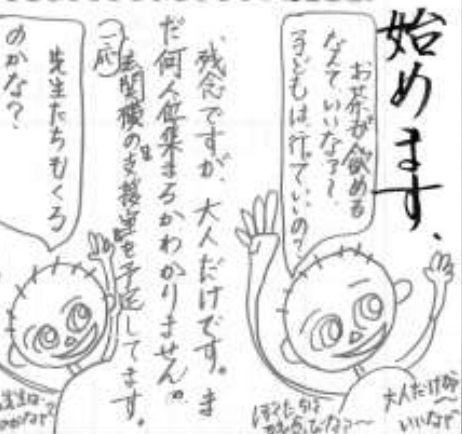 始めます。
お茶が飲める
なんて、いいなァ〜。
子どもは行っていいの?
残念ですが、大人だけです。ま
だ何人位集まるかわかりません。
(一応)玄関横の支援室を予定してます。
先生たちもくる
のかな?
大人だけか〜
いいなぁ〜
ぼくたちは